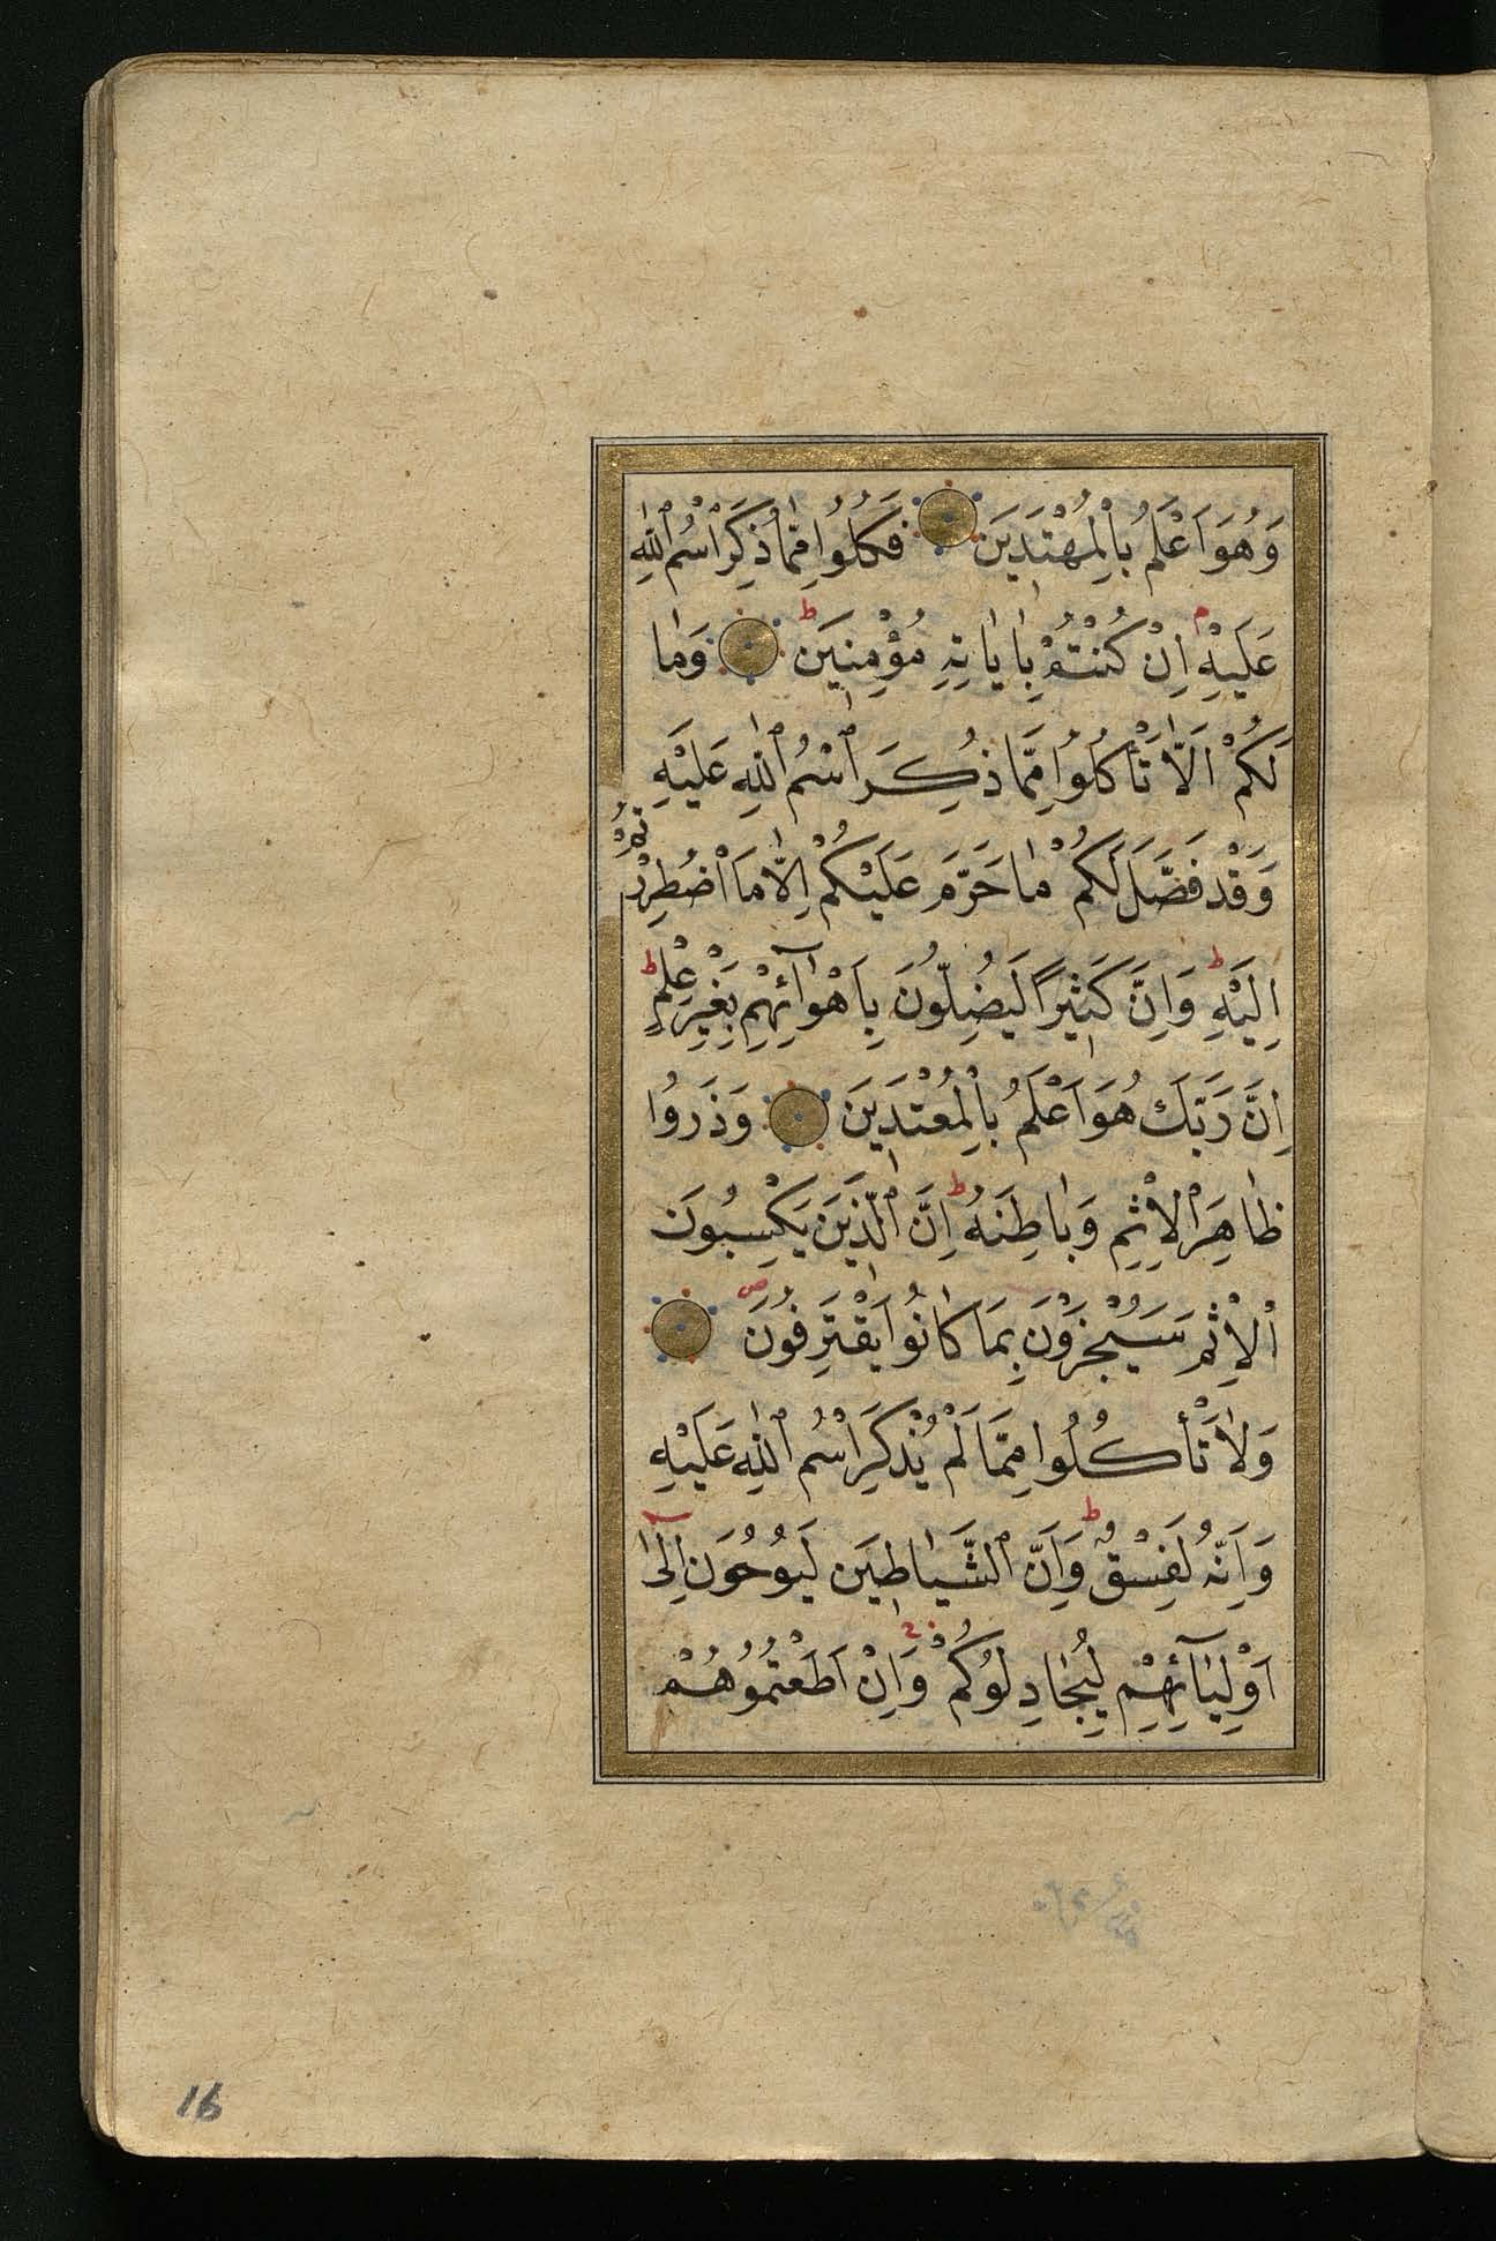 وَهُوَ اَعْلَمُ بِالْمُهْتَدِينَ فَكُلُوا مِمَّا ذُكِرَ اسْمُ اللهِ
عَلَيْهِ اِنْ كُنْتُمْ بِاٰيَاتِهِ مُؤْمِنِينَ ط وَمَا
لَكُمْ اَلَّا تَأْكُلُوا مِمَّا ذُكِرَ اسْمُ اللهِ عَلَيْهِ
وَقَدْ فَصَّلَ لَكُمْ مَا حَرَّمَ عَلَيْكُمْ اِلَّا مَا اضْطُرِرْتُمْ
اِلَيْهِ ط وَاِنَّ كَثِيرًا لَيُضِلُّونَ بِاَهْوَآئِهِمْ بِغَيْرِ عِلْمٍ ط
اِنَّ رَبَّكَ هُوَ اَعْلَمُ بِالْمُعْتَدِينَ وَذَرُوا
ظَاهِرَ الْاِثْمِ وَبَاطِنَهُ ط اِنَّ الَّذِينَ يَكْسِبُونَ
الْاِثْمَ سَيُجْزَوْنَ بِمَا كَانُوا يَقْتَرِفُونَ ص
وَلَا تَأْكُلُوا مِمَّا لَمْ يُذْكَرِ اسْمُ اللهِ عَلَيْهِ
وَاِنَّهُ لَفِسْقٌ ط وَاِنَّ الشَّيَاطِينَ لَيُوحُونَ اِلٰى
اَوْلِيَآئِهِمْ لِيُجَادِلُوكُمْ وَاِنْ اَطَعْتُمُوهُمْ
16